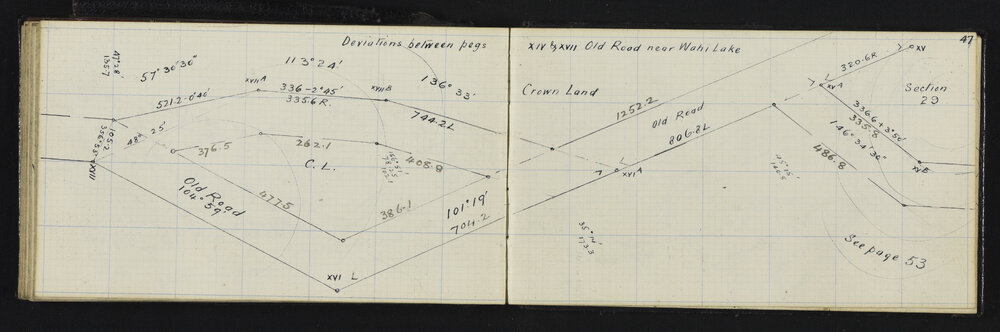 47
Deviations between pegs XIV & XVII Old Road near Wahi Lake
57°30'30"
113°24'
136°33'
XVII A
XVII B
521.2-0°40'
336-2°45'
335.6R.
744.2L
105.2
48° 25'
XVII
376.5
262.1
C. L.
408.8
Old Road
104°59'
477.5
386.1
101°19'
704.2
XVI L
Crown Land
1252.2
Old Road
806.8L
XVI A
35°14'
173.3
320.6R
XV
XV A
Section
29
336.6+3°50'
335.8
146°34'30"
486.8
XV B
See page 53